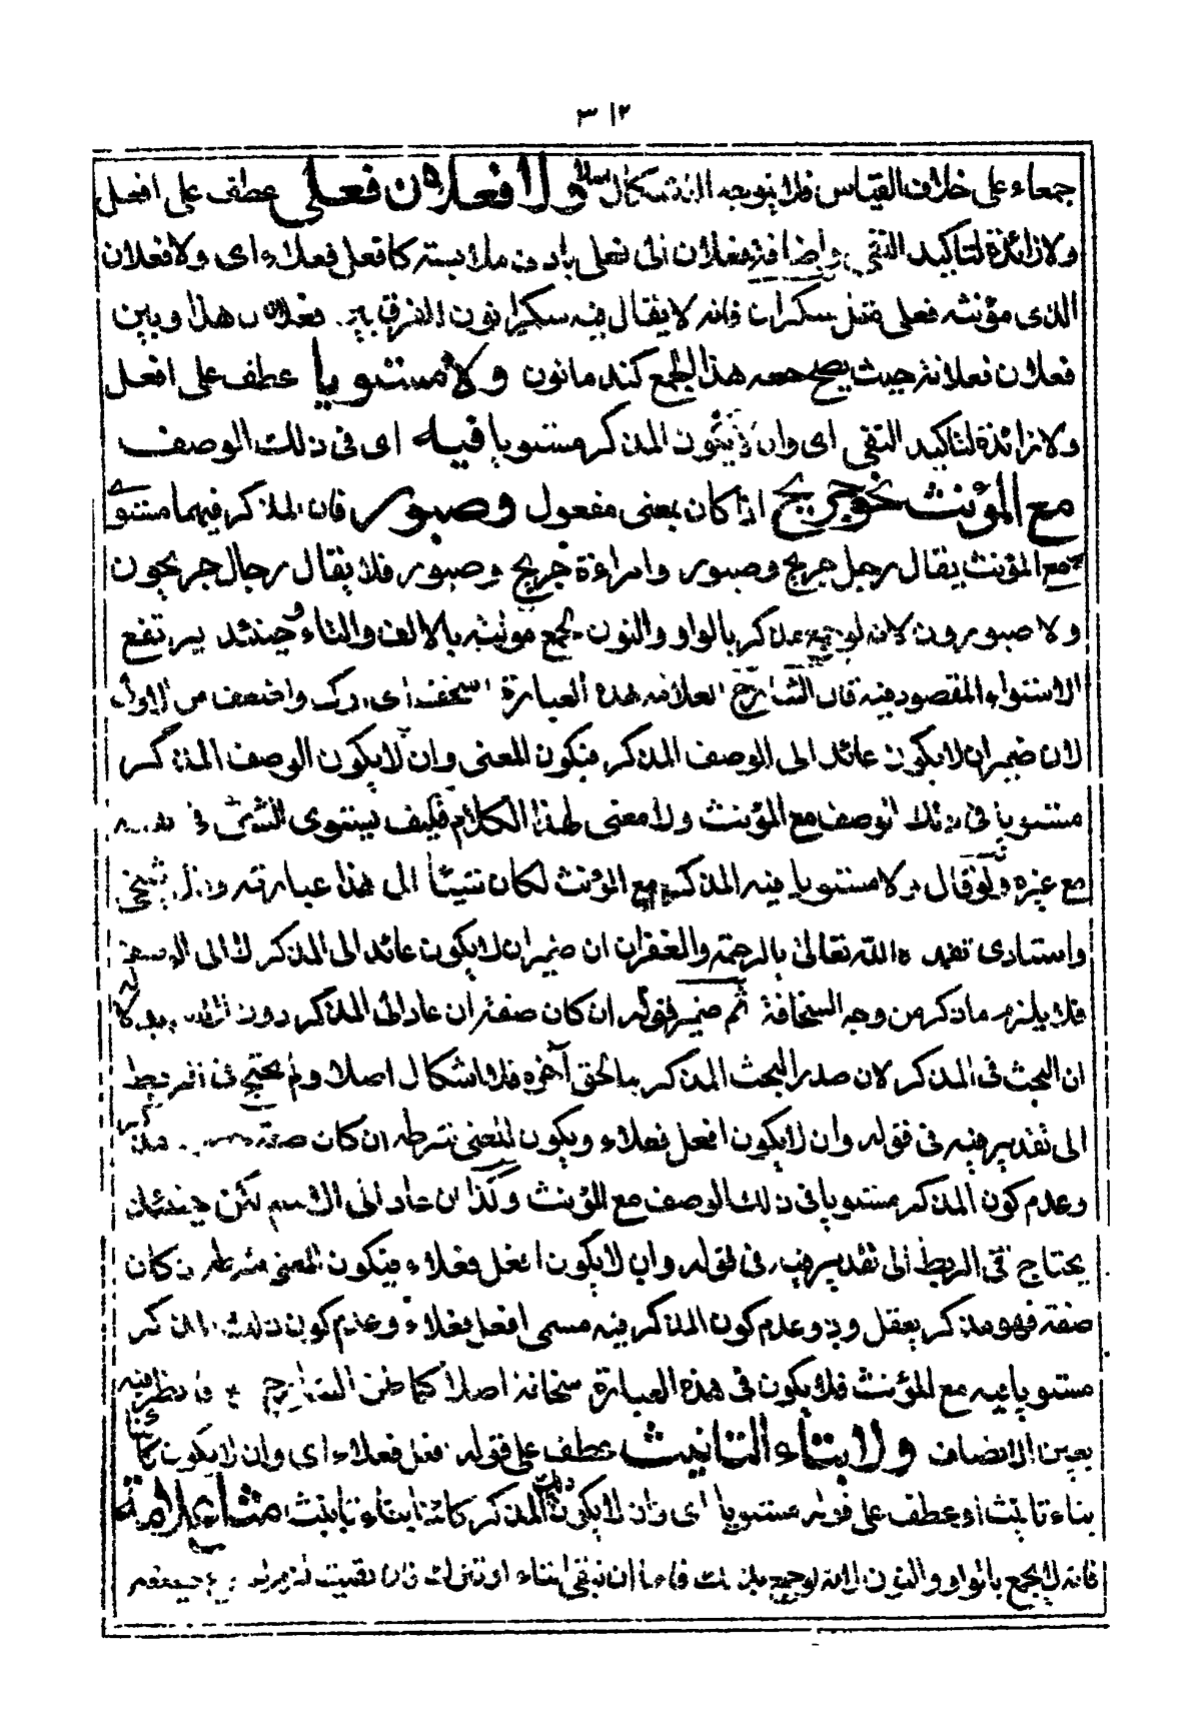 ٣١٢
جمعاء على خلاف القياس فلا يتوجه الاشكال اصلا ولا فعلان فعلى عطف على افعل
ولا زائدة لتاكيد النفى واضافة فعلان الى فعلى بادنى ملابسة كافعل فعلاء اى ولا فعلان
الذى مؤنثه فعلى مثل سكران فانه لا يقال فيه سكرانون للفرق بين فعلان هذا وبين
فعلان فعلانة حيث يصح جمعه هذا الجمع كندمانون ولا مستويا عطف على افعل
ولا زائدة لتاكيد النفى اى وان لا يكون المذكر مستويا فيه اى فى ذلك الوصف
مع المؤنث نحو جريح اذا كان بمعنى مفعول وصبور فان المذكر فيهما مستوى
مع المؤنث يقال رجل جريح وصبور وامراءة جريح وصبور فلا يقال رجال جريحون
ولا صبورون لانه لو جمع مذكر بالواو والنون يجمع مؤنثه بالالف والتاء وحينئذ يرتفع
الاستواء المقصود فيه قال الشارح العلامة هذه العبارة اسخف اى ارك واضعف من الاول
لان ضمير ان لا يكون عائد الى الوصف المذكر فيكون المعنى وان لا يكون الوصف المذكر
مستويا فى ذلك الوصف مع المؤنث ولا معنى لهذا الكلام فكيف يستوى الشئ فى
مع غيره ولو قال ولا مستويا فيه المذكر مع المؤنث لكان شيئا الى هذا عبارته شيخى
واستادى تغمده الله تعالى بالرحمة والغفران ان ضمير ان لا يكون عائد الى المذكر لا الى الوصف
فلا يلزم ما ذكر من وجه السخافة ثم ضمير قوله ان كان صفة ان عاد الى المذكر دون
ان البحث فى المذكر لان صدر البحث المذكر بما لحق آخره فلا اشكال اصلا ولم يحتج فى الربط
الى تقدير فيه فى قوله وان لا يكون افعل فعلاء ويكون المعنى شرطه ان كان صفة
وعدم كون المذكر مستويا فى ذلك الوصف مع المؤنث وكذا ان عاد الى الاسم لكن حينئذ
يحتاج فى الربط الى تقدير فيه فى قوله وان لا يكون افعل فعلاء فيكون المعنى شرطه ان كان
صفة فهو مذكر يعقل وعدم كون المذكر فيه مسمى افعل فعلاء وعدم كون ذلك المذكر
مستويا فيه مع المؤنث فلا يكون فى هذه العبارة سخافة اصلا كما ظن الشارح فانظر فيه
بعين الانصاف ولا بتاء التانيث عطف على قوله افعل فعلاء اى وان لا يكون كائنا
بتاء تانيث او عطف على قوله مستويا اى وان لا يكون ذلك المذكر كائنا بتاء تانيث مثل علامة
فانه لا يجمع بالواو والنون لانه لو جمع بذلك فاما ان تبقى التاء او تترك فان بقيت